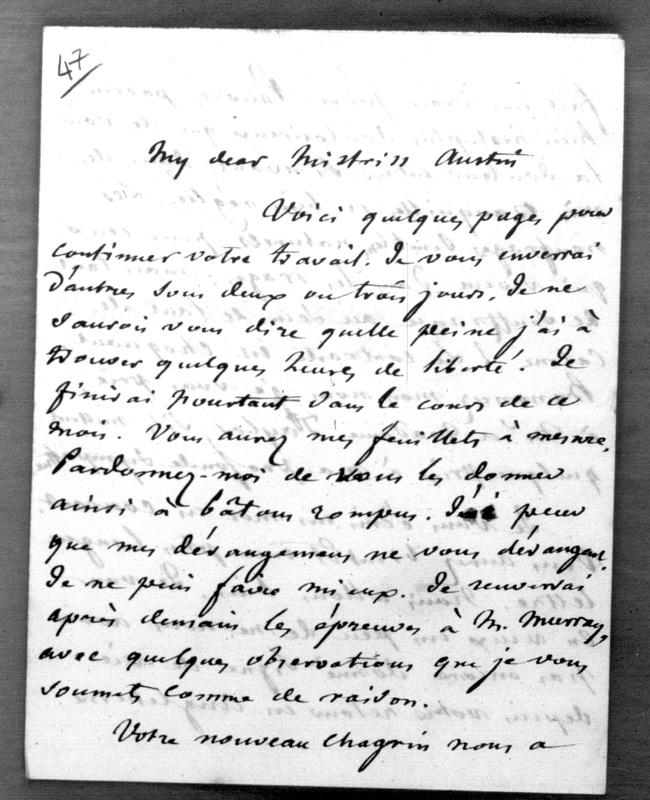 47
My dear Mistriss Austin
Voici quelques pages pour
continuer votre travail. Je vous enverrai
d'autres sous deux ou trois jours. Je ne
saurois vous dire quelle peine j'ai à
trouver quelques heures de liberté. Je
finirai pourtant dans le cours de ce
mois. Vous aurez mes feuillets à mesure.
Pardonnez-moi de vous les donner
ainsi à bâtons rompus. J'ai peur
que mes dérangemens ne vous dérangent.
Je ne puis faire mieux. Je renverrai
après demain les épreuves à M. Murray,
avec quelques observations que je vous
soumets comme de raison.
Votre nouveau chagrin nous a